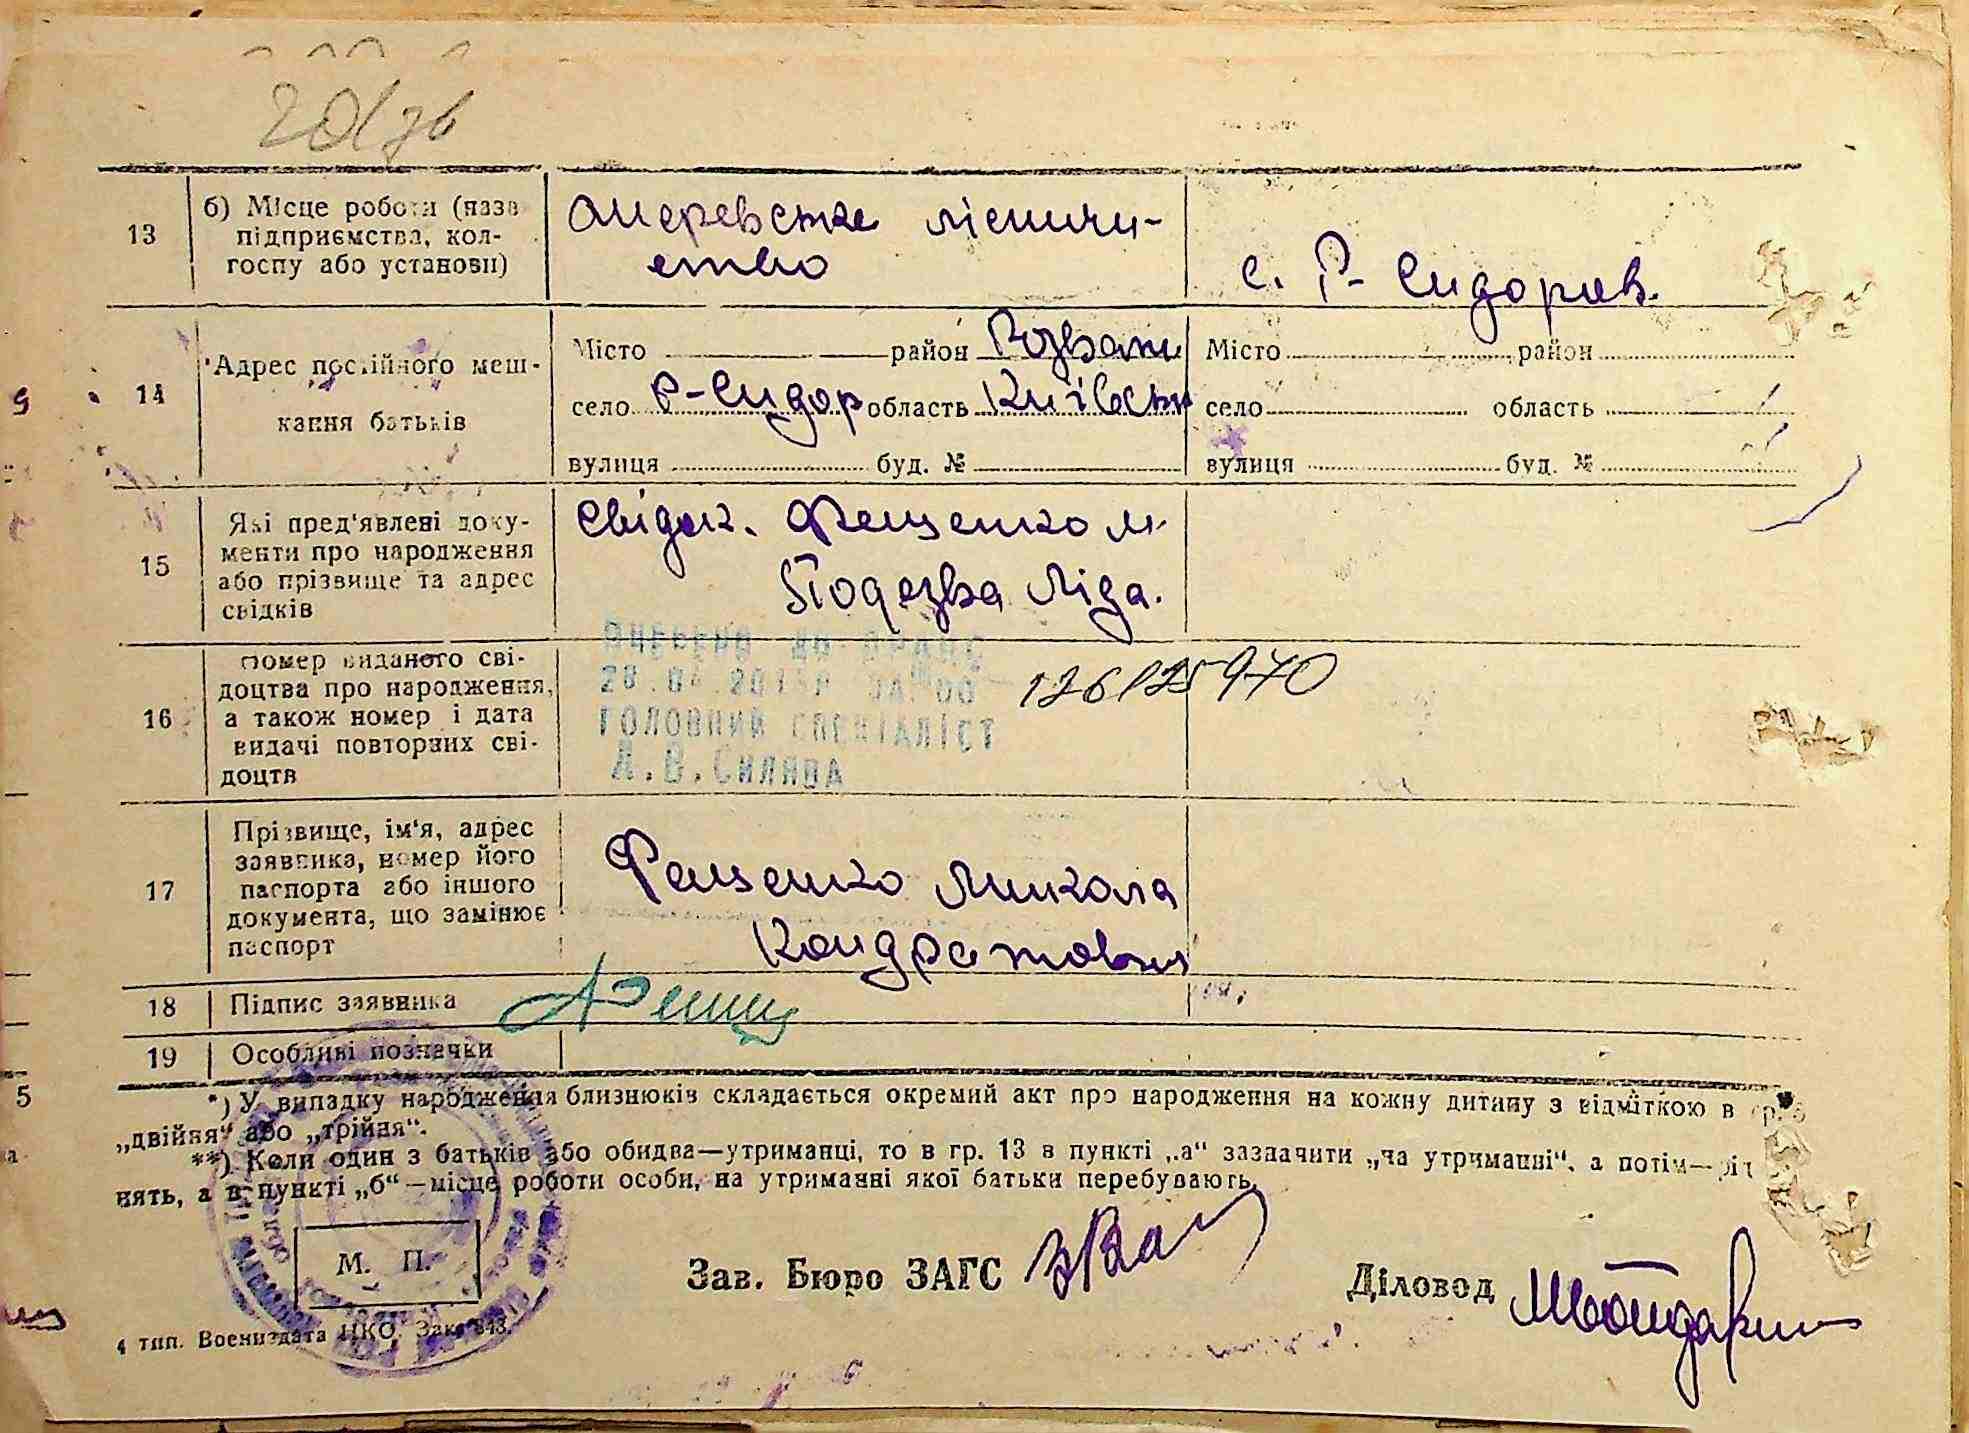 13
б) Місце роботи (назв
підприємства, кол-
госпу або установи)
лісничи-
ство
с. Р- Сидорів.
14
Адрес постійного меш-
кання батьків
Місто район Розваж
село Р-Сидор область Київськ
вулиця буд. №
Місто район
село область
вулиця буд. №
15
Які пред'явлені доку-
менти про народження
або прізвище та адрес
свідків
свідок. Фещенко М.
Ліда.
16
Номер виданого сві-
доцтва про народження,
а також номер і дата
видачі повторних сві-
доцтв
ВНЕСЕНО ДО ДРАЦС
ГОЛОВНИЙ СПЕЦІАЛІСТ
17
Прізвище, ім'я, адрес
заявника, номер його
паспорта або іншого
документа, що замінює
паспорт
Фещенко Микола
Кондратович
18 Підпис заявника
19 Особливі позначки
*) У випадку народження близнюків складається окремий акт про народження на кожну дитину з відміткою в
„двійня“ або „трійня“.
**) Коли один з батьків або обидва—утриманці, то в гр. 13 в пункті „а“ зазначити „на утриманні“, а потім—
нять, а в пункті „б“—місце роботи особи, на утриманні якої батьки перебувають.
М. П.
Зав. Бюро ЗАГС
Діловод
4 тип. Воениздата НКО. Зак. 843.
5